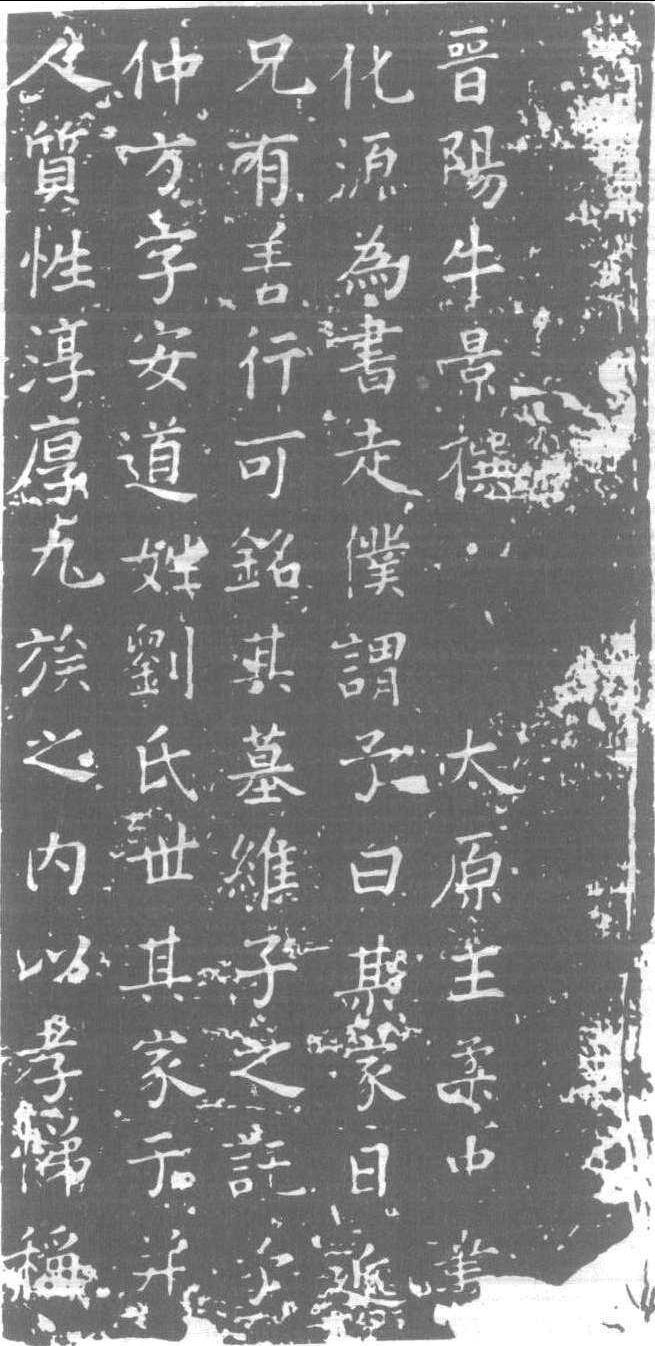 晉陽牛景撰 大原王柔中書
化源為書走僕謂予曰家日
兄有善行可銘其墓維子之託予
仲方字安道姓劉氏世其家于并
人質性淳厚凡族之内以孝悌稱